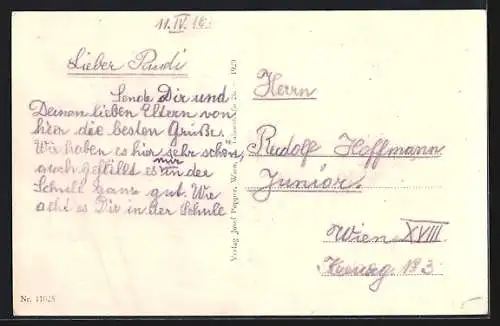 11. IV. 193
Lieber Pardi
Sende Dir und
Deinen lieben Eltern von
hier die besten Grüße.
Wir haben es hier sehr schön,
auch gefällt es mir in der
Schnell ganz gut. Wie
geht es Dir in der Schule
Verlag Josef Popper, Wien, 1929
Herrn
Rudolf Hoffmann
Junior.
Wien XVIII
193
Nr. 11028